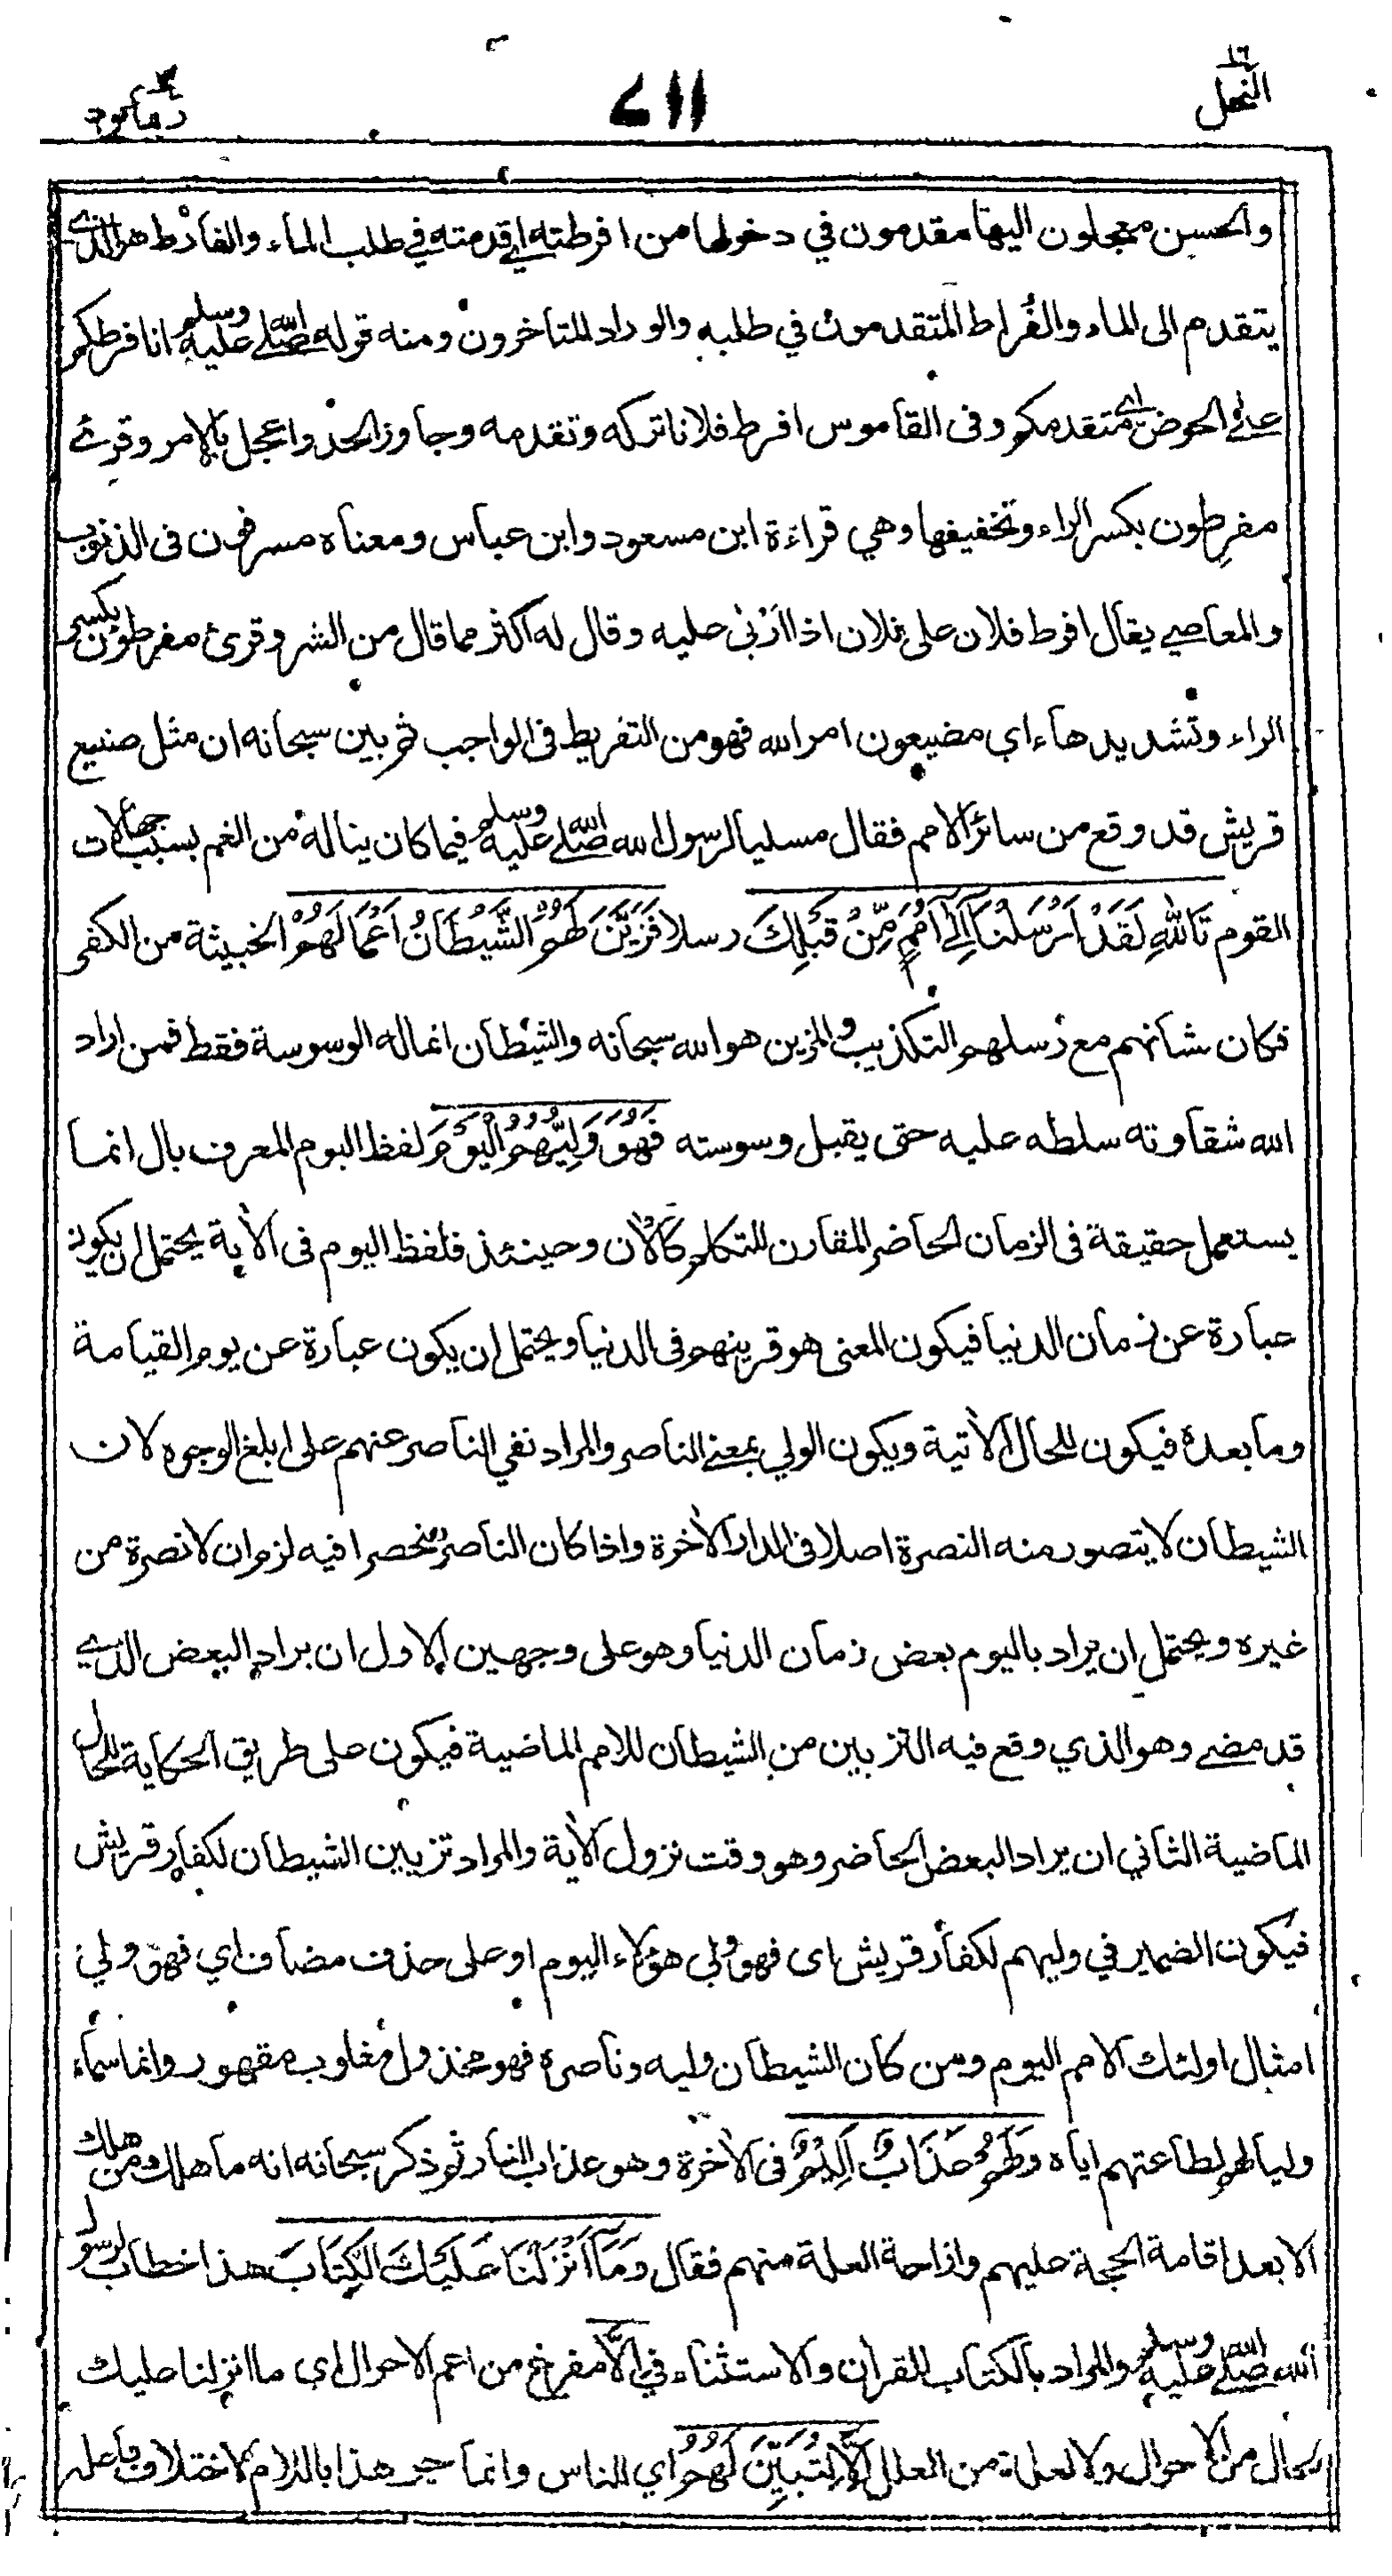 النحل ١٦
٧١١
ربما ١٤
والحسن معجلون اليها مقدمون في دخولها من افرطته اي قدمته في طلب الماء والفارط هو الذي
يتقدم الى الماء والفُراط المتقدمون في طلبه والوراد المتأخرون ومنه قوله صلى الله عليه وسلم انا فرطكم
على الحوض اي متقدمكم وفى القاموس افرط فلانا تركه وتقدمه وجاوز الحد واعجل بالامر وقرئ
مفرِطون بكسر الراء وتخفيفها وهي قراءة ابن مسعود وابن عباس ومعناه مسرفون فى الذنوب
والمعاصي يقال افرط فلان على فلان اذا اربى عليه وقال له اكثر مما قال من الشر وقرئ مفرطون بكسر
الراء وتشديدهاء اي مضيعون امر الله فهو من التفريط فى الواجب ثم بين سبحانه ان مثل صنيع
قريش قد وقع من سائر الامم فقال مسليا لرسول الله صلى الله عليه وسلم فيما كان يناله من الغم بسبب جهالات
القوم تَاللّٰهِ لَقَدْ اَرْسَلْنَا اِلٰى اُمَمٍ مِّنْ قَبْلِكَ رسلا فَزَيَّنَ لَهُمُ الشَّيْطَانُ اَعْمَالَهُمْ الخبيثة من الكفر
فكان شأنهم مع رسلهم التكذيب والمزين هو الله سبحانه والشيطان انما له الوسوسة فقط فمن اراد
الله شقاوته سلطه عليه حتى يقبل وسوسته فَهُوَ وَلِيُّهُمُ الْيَوْمَ لفظ اليوم المعرف بال انما
يستعمل حقيقة فى الزمان الحاضر المقارن للتكلم كالآن وحينئذ فلفظ اليوم فى الآية يحتمل ان يكون
عبارة عن زمان الدنيا فيكون المعنى هو قرينهم فى الدنيا ويحتمل ان يكون عبارة عن يوم القيامة
وما بعده فيكون للحال الآتية ويكون الولي بمعنى الناصر والمراد نفي الناصر عنهم على ابلغ الوجوه لان
الشيطان لا يتصور منه النصرة اصلا فى الدار الآخرة واذا كان الناصر منحصرا فيه لزم ان لا نصرة من
غيره ويحتمل ان يراد باليوم بعض زمان الدنيا وهو على وجهين الاول ان يراد البعض الذي
قد مضى وهو الذي وقع فيه التزيين من الشيطان للامم الماضية فيكون على طريق الحكاية للحال
الماضية الثاني ان يراد البعض الحاضر وهو وقت نزول الآية والمراد تزيين الشيطان لكفار قريش
فيكون الضمير في وليهم لكفار قريش اى فهو ولي هؤلاء اليوم او على حذف مضاف اي فهو ولي
امثال اولئك الامم اليوم ومن كان الشيطان وليه وناصره فهو مخذول مغلوب مقهور وانما سماه
وليا لهم لطاعتهم اياه وَلَهُمْ عَذَابٌ اَلِيْمٌ فى الآخرة وهو عذاب النار ثم ذكر سبحانه انه ما هلك من هلك
الا بعد اقامة الحجة عليهم وازاحة العلة منهم فقال وَمَا اَنْزَلْنَا عَلَيْكَ الْكِتَابَ هذا خطاب لرسول
الله صلى الله عليه وسلم والمراد بالكتاب القران والاستثناء في اِلَّا مفرغ من اعم الاحوال اي ما انزلنا عليك
بحال من الاحوال ولا لعلة من العلل اِلَّا لِتُبَيِّنَ لَهُمُ اي للناس وانما جر هذا باللام لاختلاف فاعله